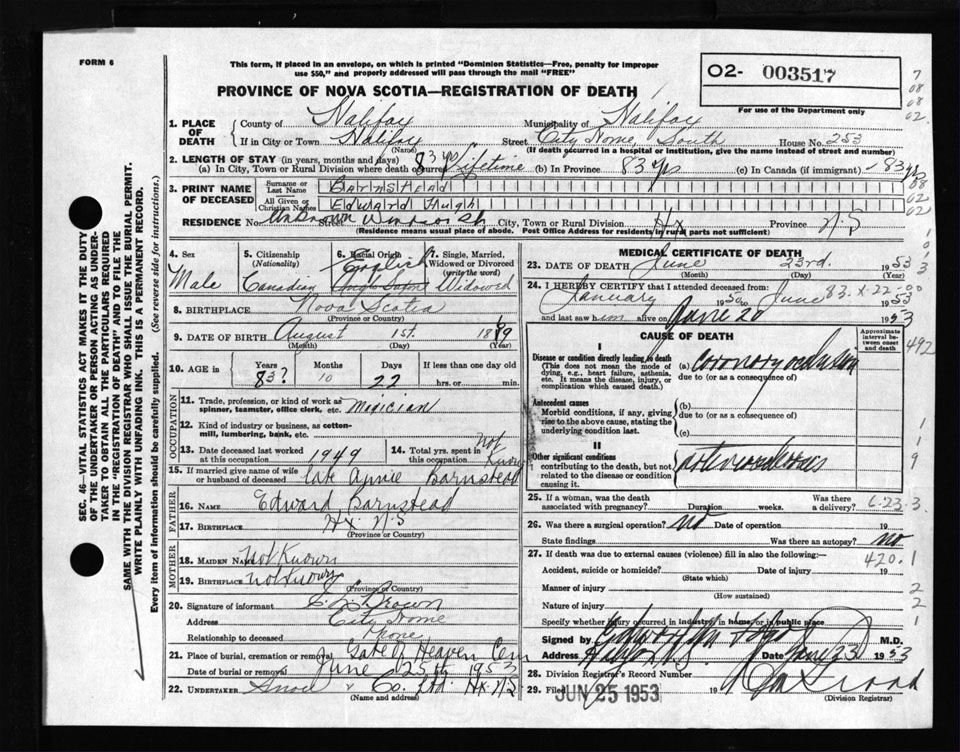 FORM 6
This form, if placed in an envelope, on which is printed "Dominion Statistics—Free, penalty for improper
use $50," and properly addressed will pass through the mail "FREE"
O2- 003517
PROVINCE OF NOVA SCOTIA—REGISTRATION OF DEATH
For use of the Department only
1. PLACE OF DEATH
County of Halifax Municipality of Halifax
If in City or Town Halifax Street City Home South House No. 253
(Name) (If death occurred in a hospital or institution, give the name instead of street and number)
2. LENGTH OF STAY (in years, months and days)
(a) In City, Town or Rural Division where death occurred 83 yrs Lifetime (b) In Province 83 yrs (c) In Canada (if immigrant) 83 yrs
3. PRINT NAME OF DECEASED
Surname or Last Name Barnstead
All Given or Christian Names Edward Hugh
RESIDENCE No. Unknown Windsor St. City, Town or Rural Division Hx Province N.S
(Residence means usual place of abode. Post Office Address for residents in rural parts not sufficient)
4. Sex Male
5. Citizenship (Nationality) Canadian
6. Racial Origin English
7. Single, Married, Widowed or Divorced (write the word) Widowed
8. BIRTHPLACE Nova Scotia
(Province or Country)
9. DATE OF BIRTH August 1st.
(Month) (Day) (Year)
10. AGE in Years 83? Months 10 Days 22 If less than one day old hrs. or min.
OCCUPATION
11. Trade, profession, or kind of work as spinner, teamster, office clerk, etc.
12. Kind of industry or business, as cotton-mill, lumbering, bank, etc.
13. Date deceased last worked at this occupation 1949
14. Total yrs. spent in this occupation Not Known
15. If married give name of wife or husband of deceased late Annie Barnstead
FATHER
16. NAME Edward Barnstead
17. BIRTHPLACE Hx. N.S
(Province or Country)
MOTHER
18. MAIDEN NAME Not Known
19. BIRTHPLACE Not Known
(Province or Country)
20. Signature of informant Brown
Address City Home
Relationship to deceased None
21. Place of burial, cremation or removal Gate of Heaven Cem
Date of burial or removal June 25th 1953
22. UNDERTAKER Snow & Co. Ltd. Hx. N.S
(Name and address)
MEDICAL CERTIFICATE OF DEATH
23. DATE OF DEATH June 23rd. 1953
(Month) (Day) (Year)
24. I HEREBY CERTIFY that I attended deceased from:
January 1950 to June 1953
and last saw him alive on June 20 1953
83.X.22-00
CAUSE OF DEATH
Approximate interval between onset and death
I
Disease or condition directly leading to death
(This does not mean the mode of dying, e.g., heart failure, asthenia, etc. It means the disease, injury, or complication which caused death.)
(a) coronary occlusion
due to (or as a consequence of)
Antecedent causes
Morbid conditions, if any, giving rise to the above cause, stating the underlying condition last.
(b)
due to (or as a consequence of)
(c)
II
Other significant conditions
contributing to the death, but not related to the disease or condition causing it.
arteriosclerosis
25. If a woman, was the death associated with pregnancy? Duration weeks. Was there a delivery?
6-23-3
26. Was there a surgical operation? no Date of operation 19
State findings Was there an autopsy? no
27. If death was due to external causes (violence) fill in also the following:—
420.1
Accident, suicide or homicide? Date of injury 19
(State which)
Manner of injury
(How sustained)
Nature of injury
Specify whether injury occurred in industry, in home, or in public place
Signed by M.D.
Address Halifax N.S. Date June 23 1953
28. Division Registrar's Record Number
29. Filed JUN 25 1953 19
(Division Registrar)
SEC. 46—VITAL STATISTICS ACT MAKES IT THE DUTY
OF THE UNDERTAKER OR PERSON ACTING AS UNDER-
TAKER TO OBTAIN ALL THE PARTICULARS REQUIRED
IN THE "REGISTRATION OF DEATH" AND TO FILE THE
SAME WITH THE DIVISION REGISTRAR WHO SHALL ISSUE THE BURIAL PERMIT.
WRITE PLAINLY WITH UNFADING INK. THIS IS A PERMANENT RECORD.
Every item of information should be carefully supplied. (See reverse side for instructions.)